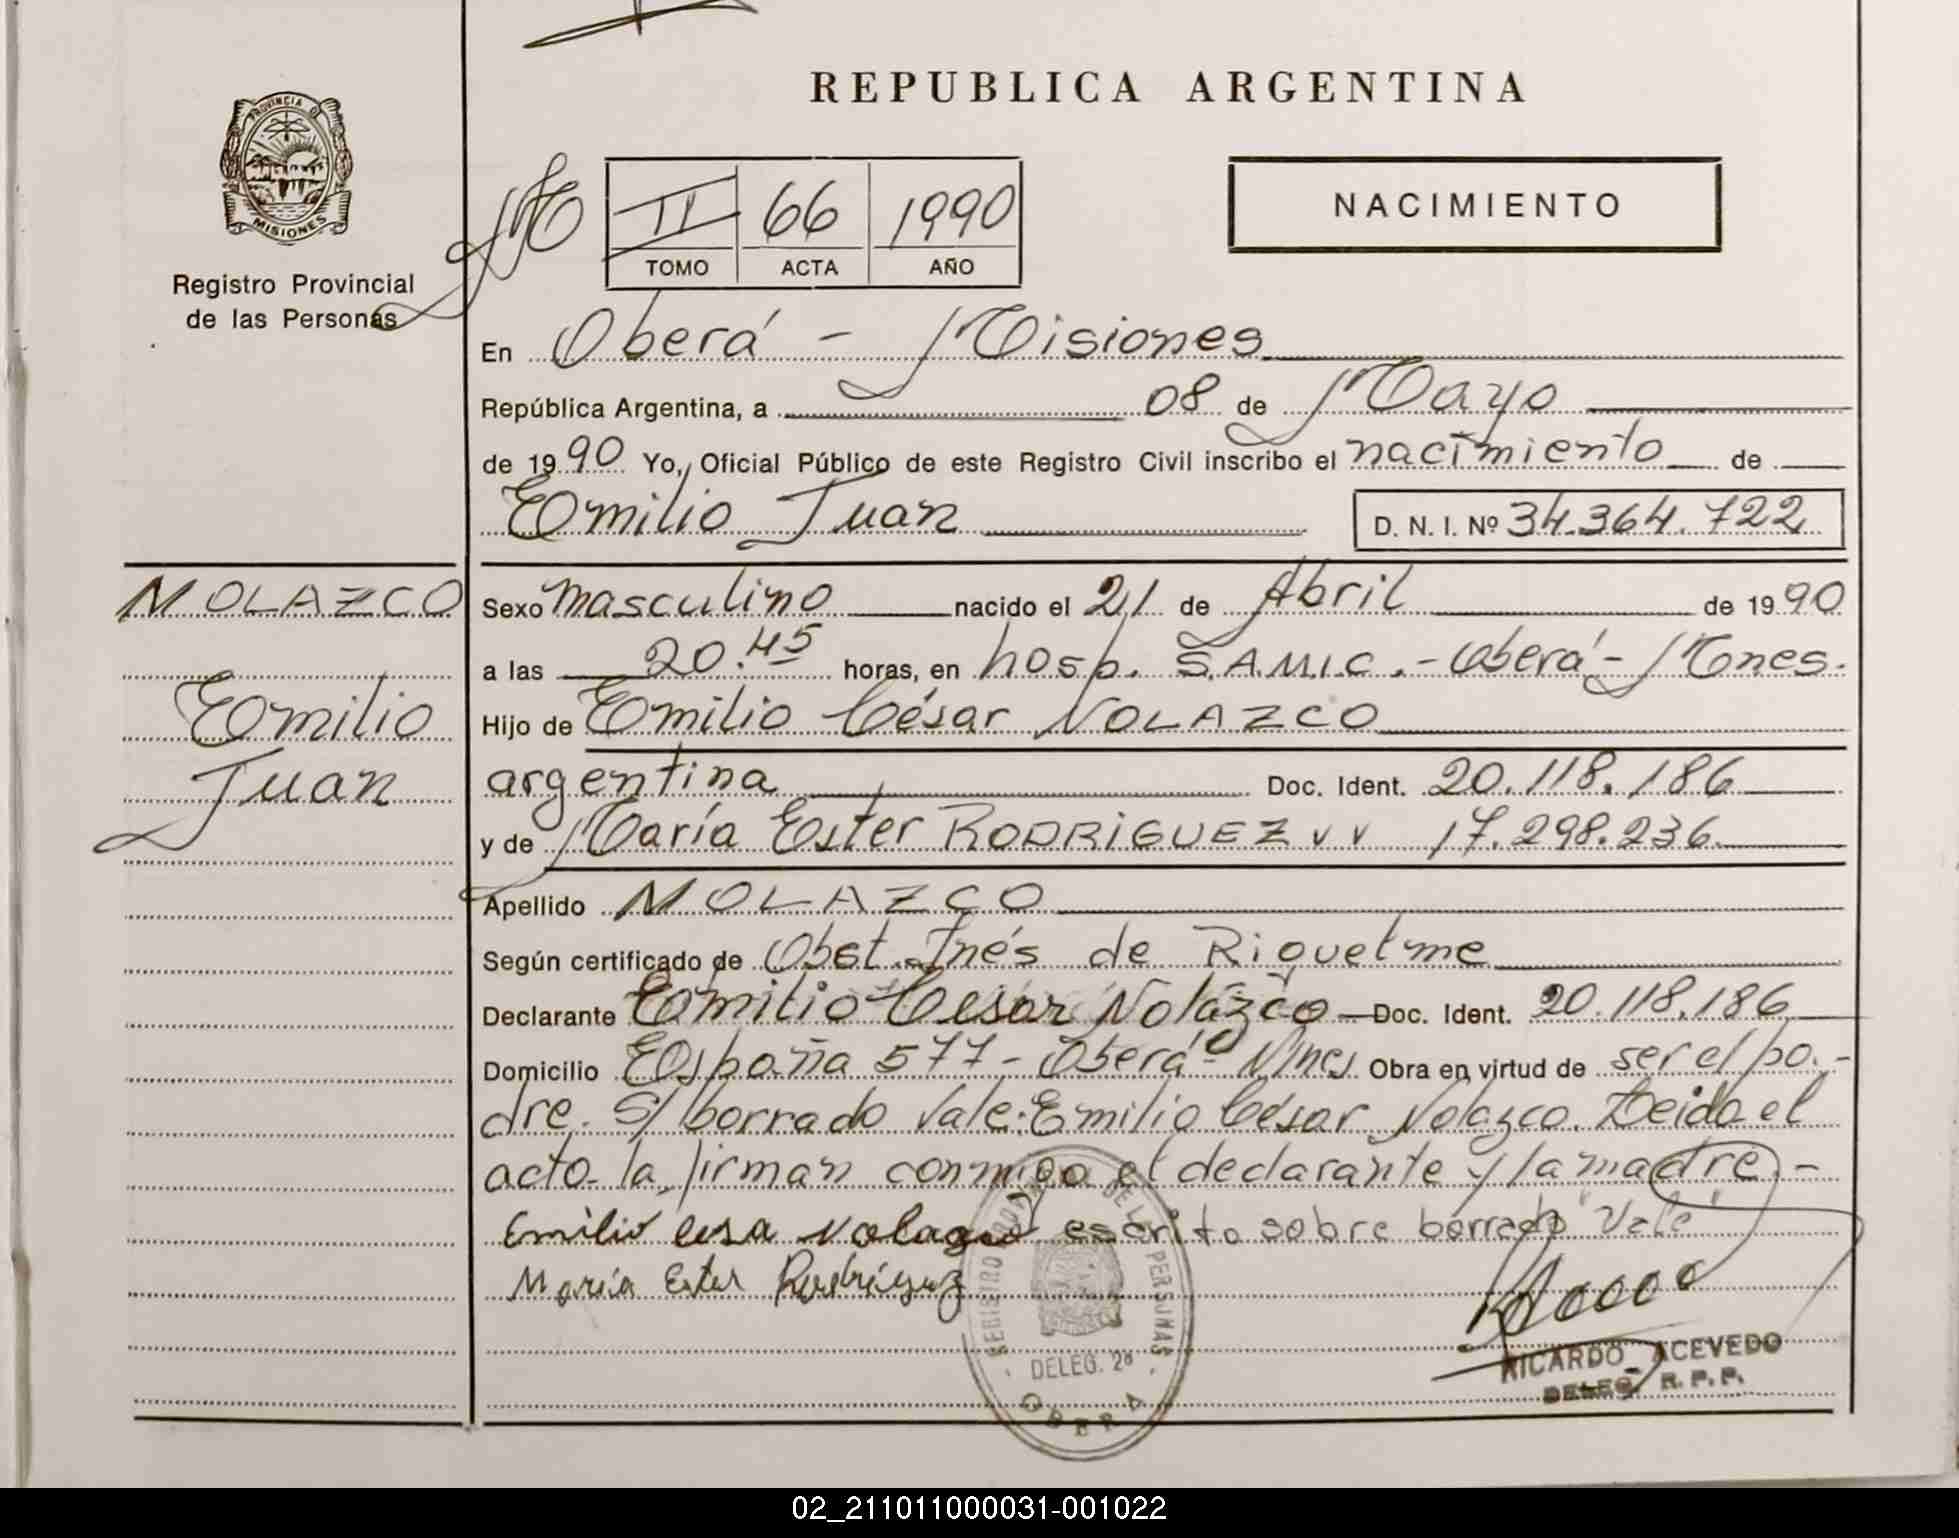 REPUBLICA ARGENTINA
PROVINCIA D
MISIONES
Registro Provincial
de las Personas
II 66 1990
TOMO ACTA AÑO
NACIMIENTO
En Oberá - Misiones
República Argentina, a 08 de Mayo
de 1990 Yo, Oficial Público de este Registro Civil inscribo el nacimiento de
Emilio Juan D. N. I. Nº 34.364.722
NOLAZCO
Emilio
Juan
Sexo masculino nacido el 21 de Abril de 1990
a las 20.45 horas, en hosp. S.A.M.I.C. - Oberá - Mnes.
Hijo de Emilio César NOLAZCO
argentina Doc. Ident. 20.118.186
y de María Ester RODRIGUEZ v v 17.298.236
Apellido NOLAZCO
Según certificado de Obst. Inés de Riquelme
Declarante Emilio Cesar Nolazco - Doc. Ident. 20.118.186
Domicilio España 577 - Oberá - Mnes Obra en virtud de ser el pa-
dre. S/ borrado Vale: Emilio César Nolazco. Leida el
acta la firman conmigo el declarante y la madre. -
Emilio cesa Nolazco escrito sobre borrado "Vale"
María Ester Rodríguez
REGISTRO PROV. DE LAS PERSONAS
DELEG. 2ª
OBERA
RICARDO ACEVEDO
DELEG. R. P. P.
02_211011000031-001022